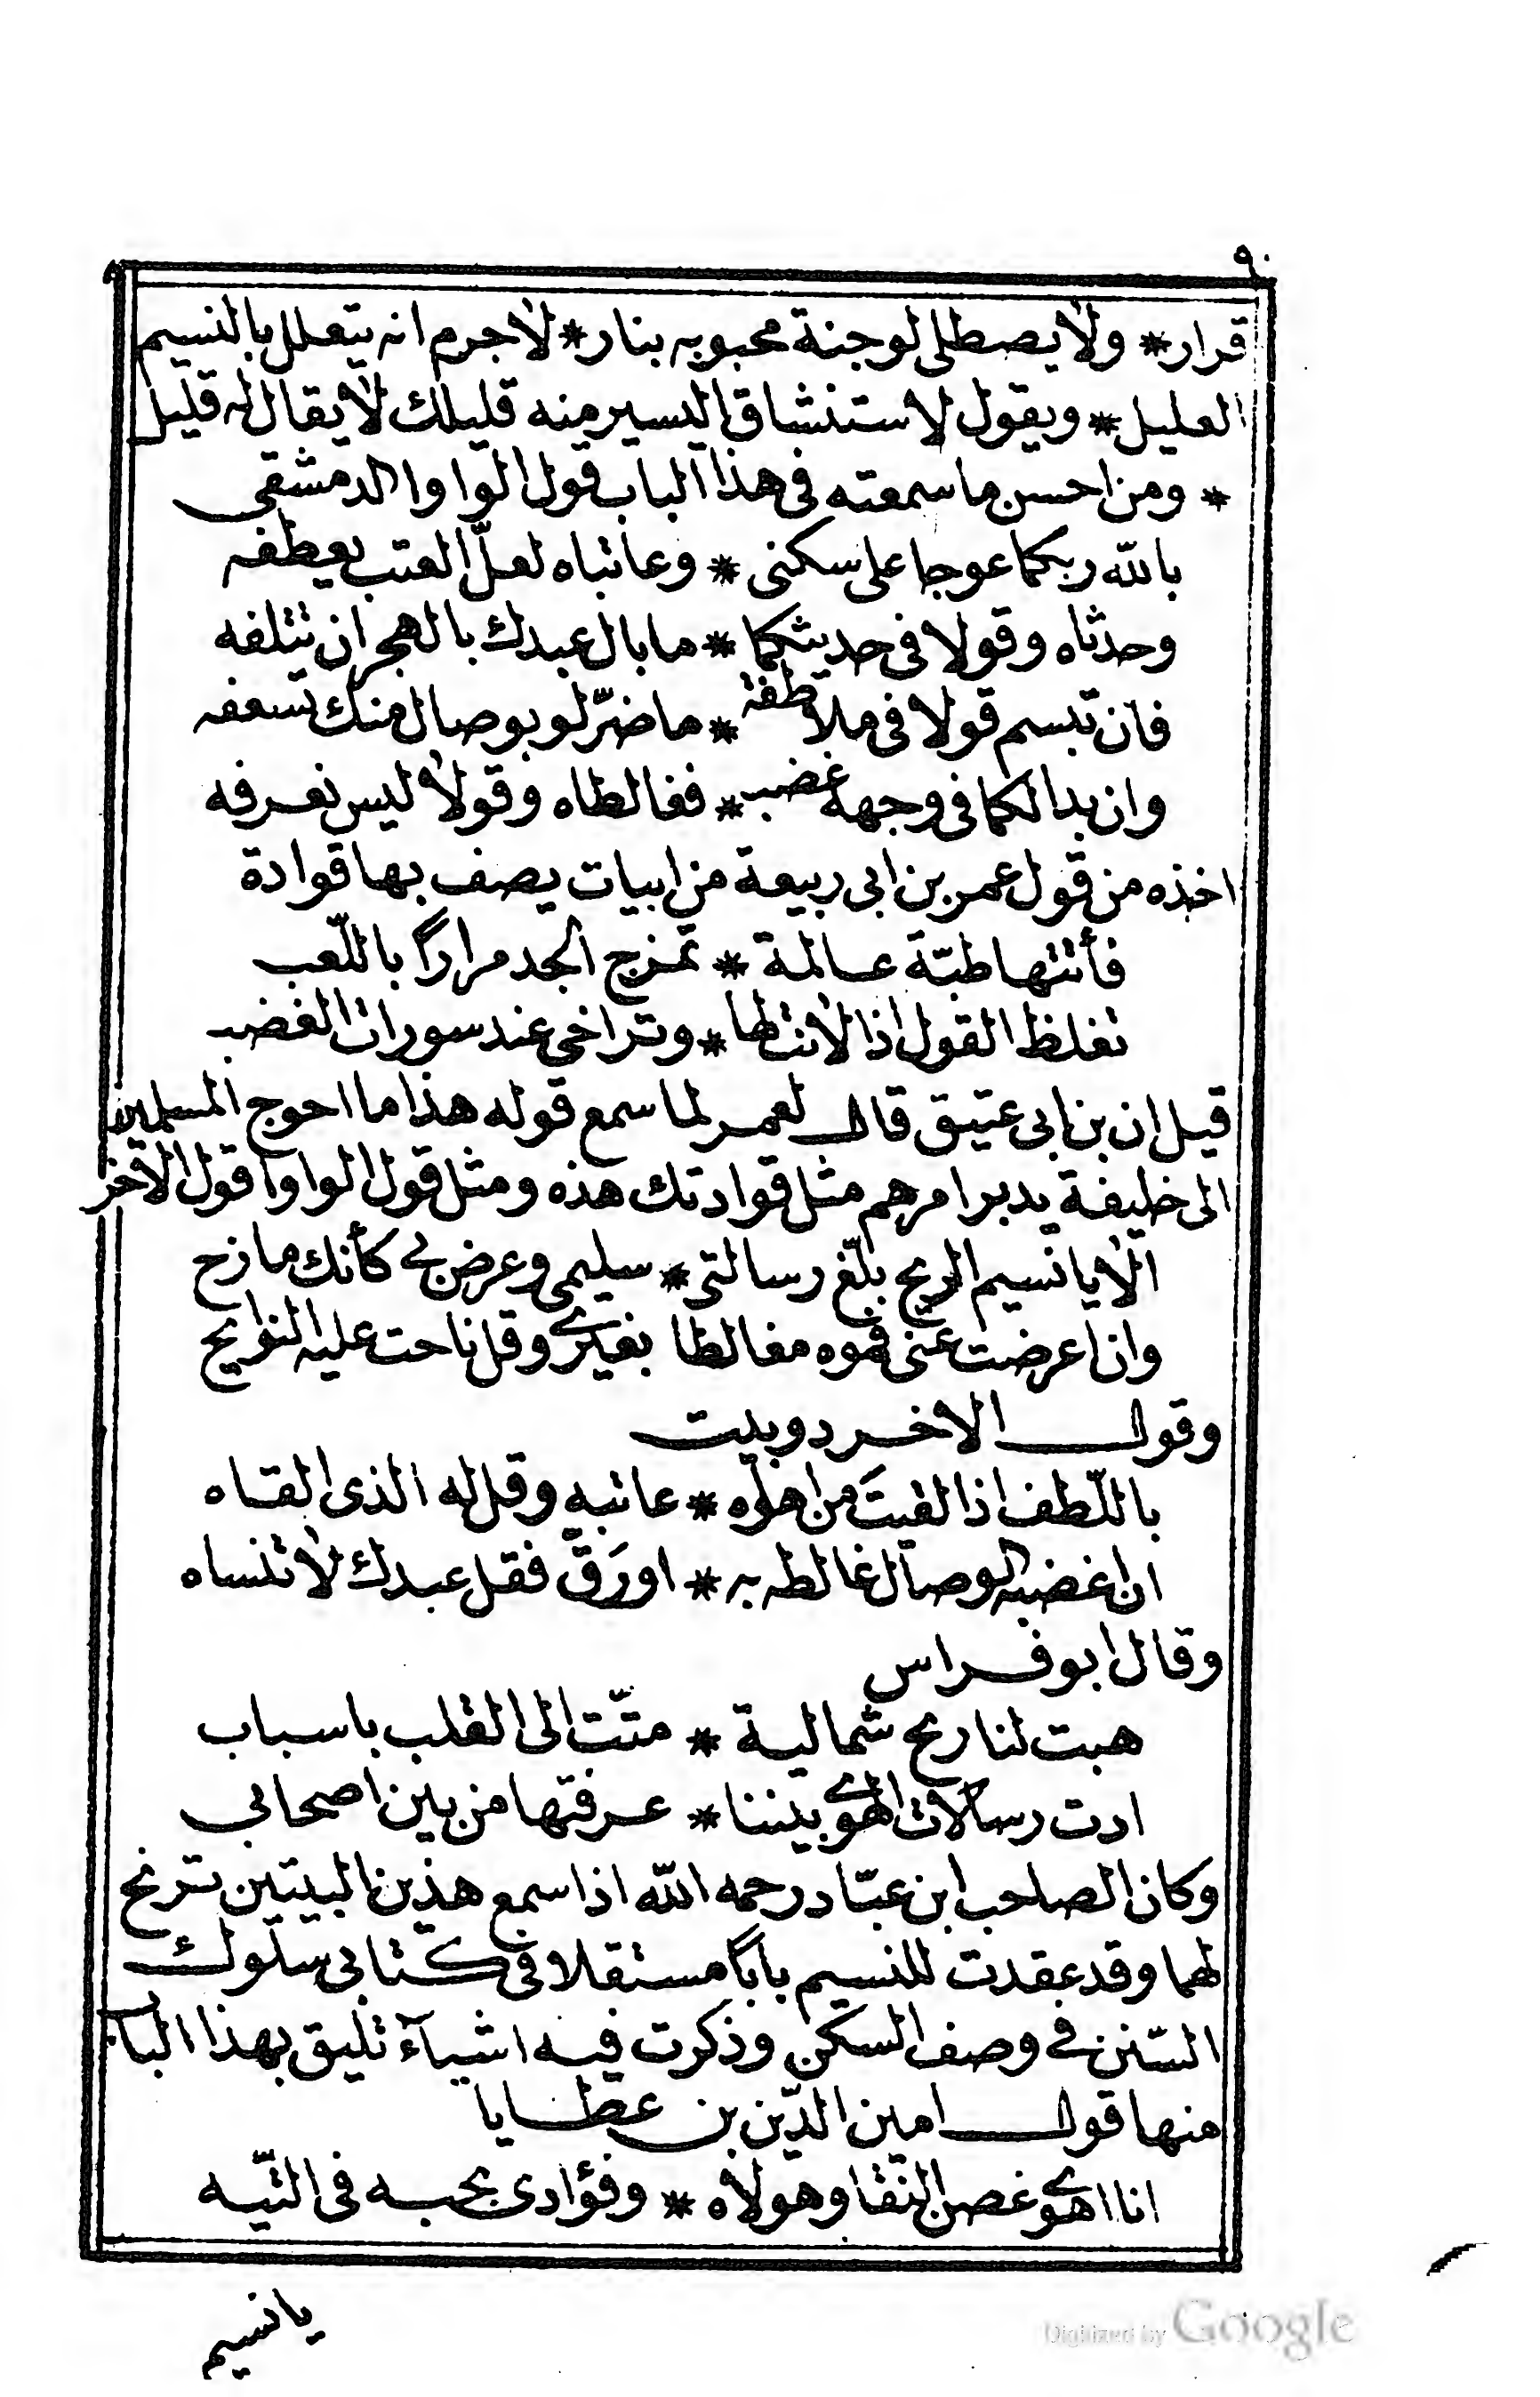 ٩٠
قرار * ولا يصطلى لوجنة محبوبه بنار * لا جرم انه يتعلل بالنسيم
العليل * ويقول لاستنشاق اليسير منه قليلك لا يقال له قليل
* ومن احسن ما سمعته فى هذا الباب قول الواوا الدمشقى
بالله ربكما عوجا على سكنى * وعاتباه لعلّ العتب يعطفه
وحدثاه وقولا فى حديثكما * ما بال عبدك بالهجران تتلفه
فان تبسم قولا فى ملاطفة * ما ضرّ لو بوصال منك تسعفه
وان بدا لكما فى وجهه غضب * فغالطاه وقولا ليس نعرفه
اخذه من قول عمر بن ابى ربيعة من ابيات يصف بها قوادة
فأتتها طبّة عالمة * تمزج الجد مرارًا باللّعب
تغلظ القول اذا لانت لها * وتراخى عند سورات الغضب
قيل ان بن ابى عتيق قال لعمر لما سمع قوله هذا ما احوج المسلمين
الى خليفة يدبر امرهم مثل قوادتك هذه ومثل قول الواوا قول الآخر
الا يا نسيم الريح بلّغ رسالتى * سليمى وعرض بى كأنك مازح
وان اعرضت عنى فموه مغالطا بغيرى وقل ناحت عليه النوايح
وقول الاخر دوبيت
باللّطف اذا لقيتَ من اهواه * عاتبه وقل له الذى القاه
ان اغضبه الوصال غالطه به * او رَقّ فقل عبدك لا تنساه
وقال ابو فراس
هبت لنا ريح شمالية * متّت الى القلب باسباب
ادت رسالات الهوى بيننا * عرفتها من بين اصحابى
وكان الصاحب ابن عبّاد رحمه الله اذا سمع هذين البيتين ترنح
لهما وقد عقدت للنسيم بابًا مستقلا فى كتابى سلوك
السّنن فى وصف السكن وذكرت فيه اشيآء تليق بهذا الباب
منها قول امين الدّين بن عطايا
انا اهوى غصن النقا وهو لاه * وفؤادى بحبه فى التّيه
يا نسيم
Digitized by Google